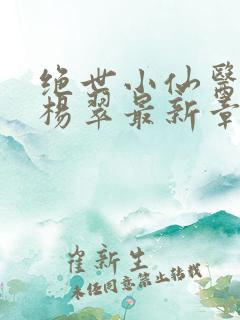 绝世小仙醫
楊翠最新章
崔新生
未经同意禁止转载